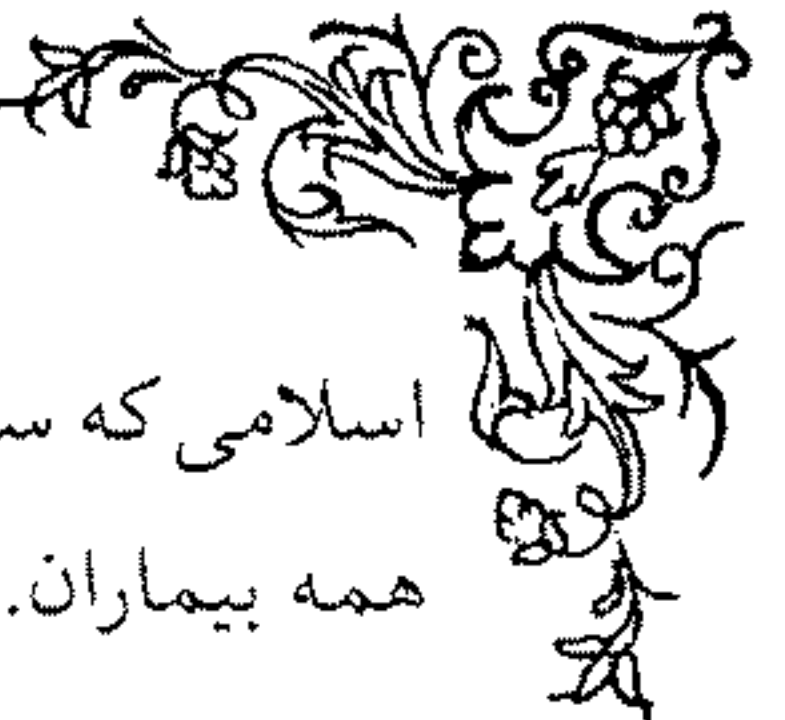 اسلامی که
همه بیماران.